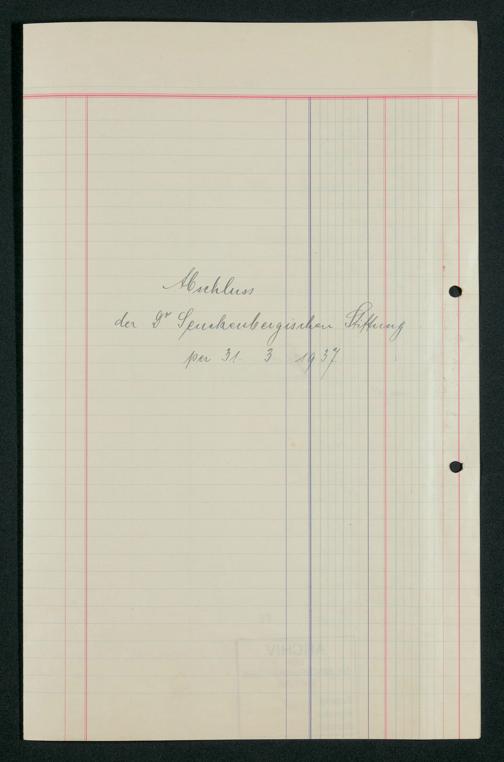 Abschluss
der Dr Senckenbergischen Stiftung
per 31. 3 1937.